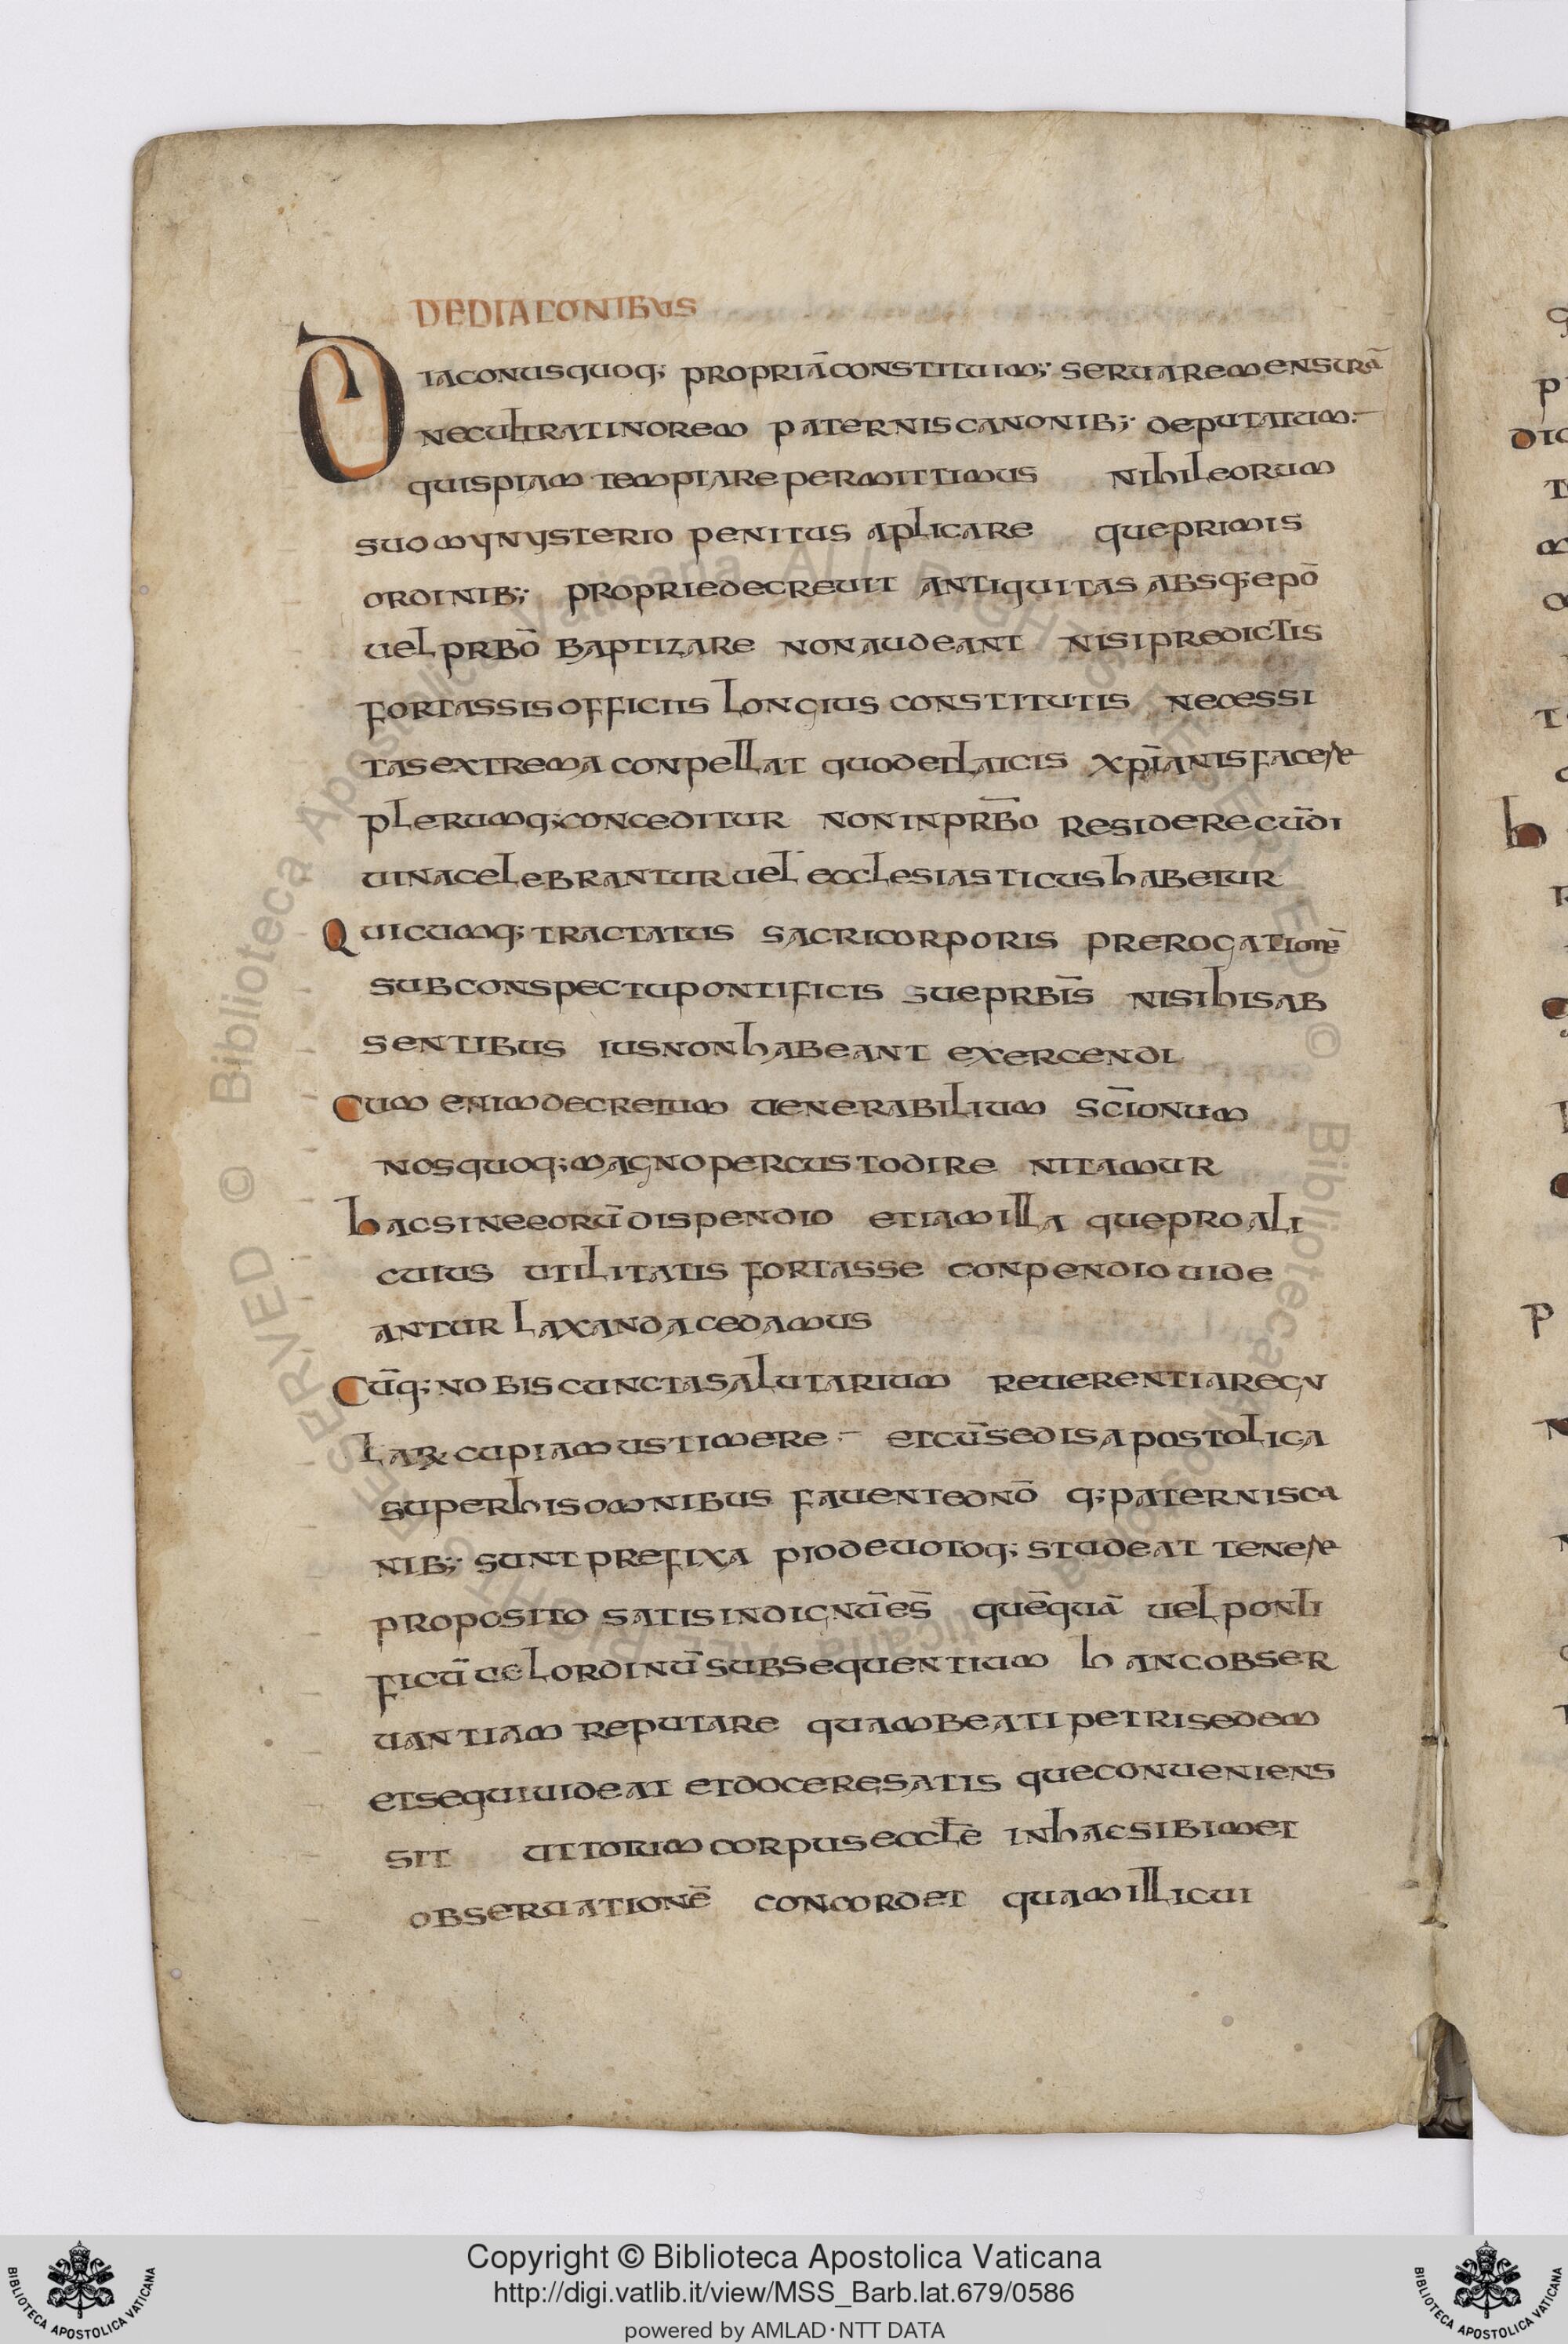 DEDIACONIBUS
DIACONUSQUOQ; PROPRIĀCONSTITUIM; SERUAREMENSURĀ
NECULTRATINOREM PATERNISCANONIB; DEPUTATUM
QUISPIAM TEMPTAREPERMITTIMUS NIHILEORUM
SUOMYNYSTERIO PENITUS APLICARE QUEPRIMIS
ORDINIB; PROPRIEDECREUIT ANTIQUITAS ABSQ;EPŌ
UELPRBŌ BAPTIZARE NONAUDEANT NISIPREDICTIS
FORTASSISOFFICIIS LONGIUS CONSTITUTIS NECESSI
TASEXTREMACONPELLAT QUODETLAICIS XPĪANISFACERE
PLERUMQ;CONCEDITUR NONINPRB̄O RESIDERECŪDI
UINACELEBRANTURUEL ECCLESIASTICUSHABETUR
QUICUMQ;TRACTATUS SACRICORPORIS PREROGATIONĒ
SUBCONSPECTUPONTIFICIS SUEPRBĪS NISIHISAB
SENTIBUS IUSNONHABEANT EXERCENDI
CUM ENIMDECRETUM UENERABILIUM SC̄IONUM
NOSQUOQ;MAGNOPERCUSTODIRE NITAMUR
HACSINEEORŪDISPENDIO ETIAMILLA QUEPROALI
CUIUS UTILITATIS FORTASSE CONPENDIOUIDE
ANTUR LAXANDACEDAMUS
CŪQ;NOBISCUNCTASALUTARIUM REUERENTIAREGU
LARX CUPIAMUSTIMERE ETCŪSEDISAPOSTOLICA
SUPERHISOMNIBUS FAUENTEDNŌ Q;PATERNISCA
NIB; SUNTPREFIXA PIODEUOTOQ; STUDEAT TENERE
PROPOSITO SATISINDIGNŪES̄ QUĒQUĀ UELPONTI
FICŪUELORDINŪSUBSEQUENTIUM HANCOBSER
UANTIAM REPUTARE QUAMBEATIPETRISEDEM
ETSEQUIUIDEAT ETDOCERESATIS QUECONUENIENS
SIT UTTOTUMCORPUSECCLĒ INHACSIBIMET
OBSERUATIONĒ CONCORDET QUAMILLICUI
Copyright © Biblioteca Apostolica Vaticana
http://digi.vatlib.it/view/MSS_Barb.lat.679/0586
powered by AMLAD·NTT DATA